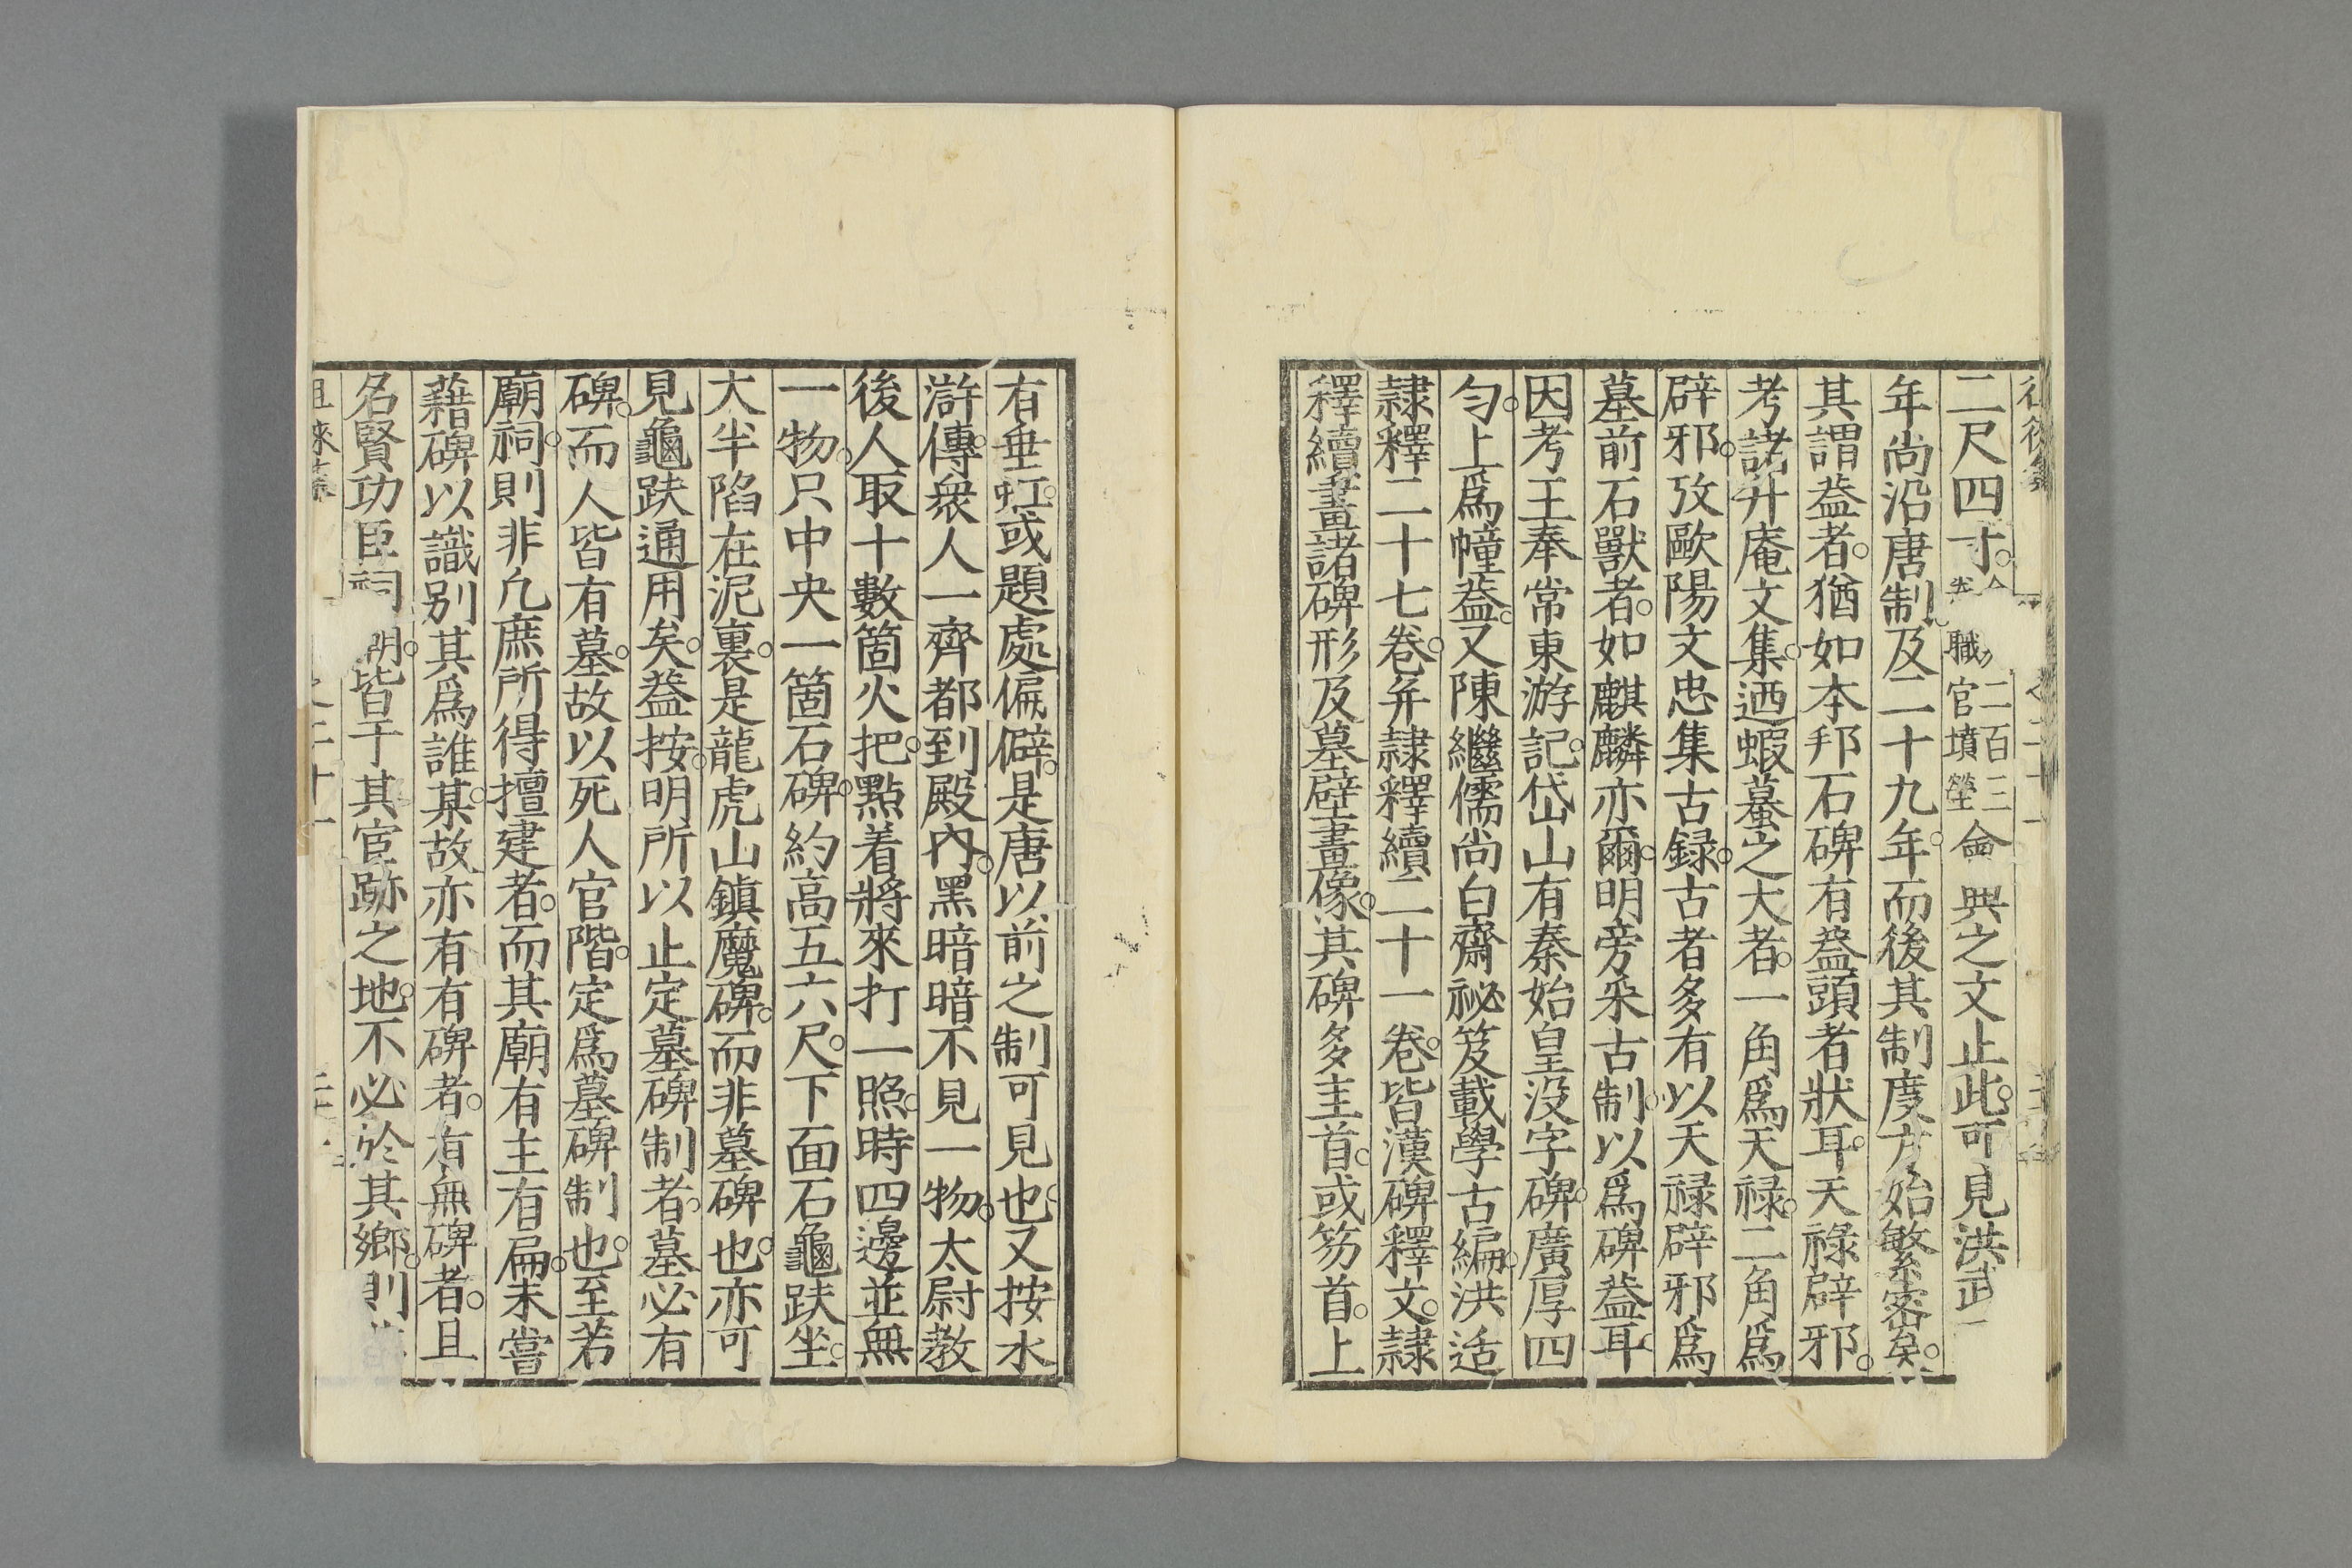 二尺四寸。職官墳塋二百三侖與之文止此。可見洪武
年尚沿唐制及二十九年。而後其制度方始繁密矣。
其謂葢者。猶如本邦石碑有葢頭者狀耳。天祿辟邪。
考諸升庵文集。迺蝦蟇之大者。一角爲天禄。二角爲
辟邪。攷歐陽文忠集古録。古者多有以天禄辟邪爲
墓前石獸者。如麒麟亦爾。明旁采古制。以爲碑葢耳。
因考王奉常東游記。岱山有秦始皇没字碑。廣厚四
勻。上爲幢葢。又陳繼儒尚白齋祕笈載學古編。洪适
隷釋二十七卷。并隷釋續二十一卷。皆漢碑釋文。隷
釋續畫諸碑形及墓壁畫像。其碑多圭首。或笏首。上
有垂虹。或題處偏僻。是唐以前之制可見也。又按水
滸傳。衆人一齊都到殿內。黑暗暗不見一物。太尉敎
後人取十數箇火把。點着將來打一照。時四邊並無
一物。只中央一箇石碑。約高五六尺。下面石龜趺坐。
大半陷在泥裏。是龍虎山鎮魔碑。而非墓碑也。亦可
見龜趺通用矣。葢按。明所以止定墓碑制者。墓必有
碑。而人皆有墓。故以死人官階。定爲墓碑制也。至若
廟祠。則非凢庶所得擅建者。而其廟有主有扁。未嘗
藉碑以識別其爲誰某。故亦有有碑者。有無碑者。且
名賢功臣祠廟。皆于其宦跡之地。不必於其鄉。則